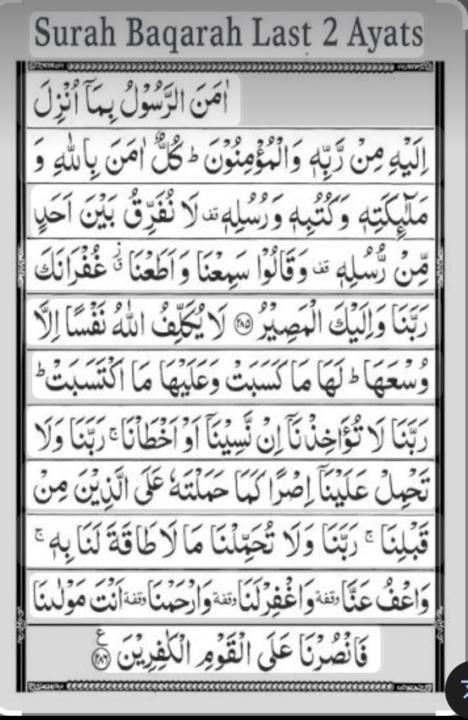 Surah Baqarah Last 2 Ayats
اٰمَنَ الرَّسُوْلُ بِمَاۤ اُنْزِلَ
اِلَيْهِ مِنْ رَّبِّهٖ وَالْمُؤْمِنُوْنَ ؕ كُلٌّ اٰمَنَ بِاللّٰهِ وَ
مَلٰٓئِكَتِهٖ وَكُتُبِهٖ وَرُسُلِهٖ قف لَا نُفَرِّقُ بَيْنَ اَحَدٍ
مِّنْ رُّسُلِهٖ قف وَقَالُوْا سَمِعْنَا وَاَطَعْنَا ق ز غُفْرَانَكَ
رَبَّنَا وَاِلَيْكَ الْمَصِيْرُ ۝۲۸۵ لَا يُكَلِّفُ اللّٰهُ نَفْسًا اِلَّا
وُسْعَهَا ؕ لَهَا مَا كَسَبَتْ وَعَلَيْهَا مَا اكْتَسَبَتْ ؕ
رَبَّنَا لَا تُؤَاخِذْنَاۤ اِنْ نَّسِيْنَاۤ اَوْ اَخْطَاْنَا ۚ رَبَّنَا وَلَا
تَحْمِلْ عَلَيْنَاۤ اِصْرًا كَمَا حَمَلْتَهٗ عَلَى الَّذِيْنَ مِنْ
قَبْلِنَا ۚ رَبَّنَا وَلَا تُحَمِّلْنَا مَا لَا طَاقَةَ لَنَا بِهٖ ۚ
وَاعْفُ عَنَّا وقفة وَاغْفِرْلَنَا وقفة وَارْحَمْنَا وقفة اَنْتَ مَوْلٰىنَا
فَانْصُرْنَا عَلَى الْقَوْمِ الْكٰفِرِيْنَ ۝۲۸۶ ع